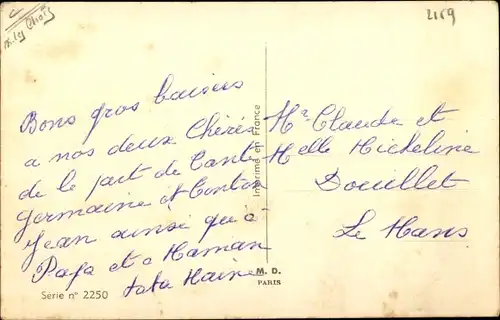 2169
Bons gros baisers
a nos deux Chéris
de le part de Tante
Germaine et Tonton
Jean ainsi qu'à
Papa et a Maman
tata Haine
Mr Claude et
Melle Micheline
Douillet
Le Mans
Imprimé en France
M. D.
PARIS
Série n° 2250